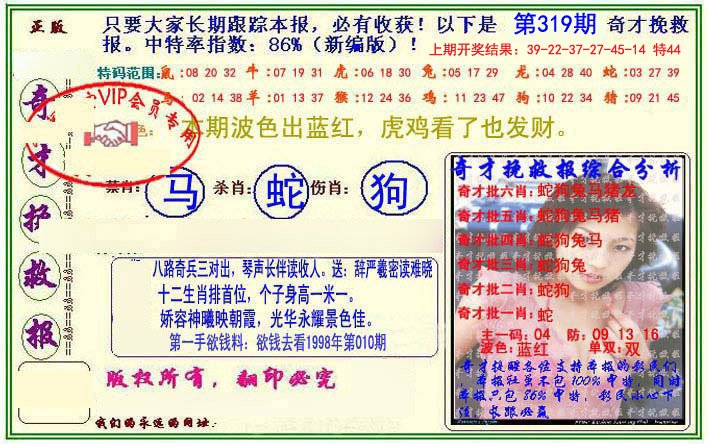 正版
只要大家长期跟踪本报，必有收获！以下是 第319期 奇才挽救
报。中特率指数：86%（新编版）！ 上期开奖结果：39-22-37-27-45-14 特44
特码范围：鼠：08 20 32 牛：07 19 31 虎：06 18 30 兔：05 17 29 龙：04 28 40 蛇：03 27 39
02 14 38 羊：01 13 37 猴：12 24 36 鸡：11 23 47 狗：10 22 34 猪：09 21 45
VIP会员专用
本期波色出蓝红，虎鸡看了也发财。
奇才护救报
禁肖：马 杀肖：蛇 伤肖：狗
八路奇兵三对出，琴声长伴读收人。送：辞严羲密读难晓
十二生肖排首位，个子身高一米一。
娇容神曦映朝霞，光华永耀景色佳。
第一手欲钱料：欲钱去看1998年第010期
版权所有，翻印必究
我们的永远的网址：
奇才挽救报综合分析
奇才批六肖：蛇狗兔马猪龙
奇才批五肖：蛇狗兔马猪
奇才批四肖：蛇狗兔马
奇才批三肖：蛇狗兔
奇才批二肖：蛇狗
奇才批一肖：蛇
主一码：04 防：09 13 16
波色：蓝红 单双：双
奇才挽救各位支持本报的彩民们
本报社虽不包100%中特，同时
本报只包86%中特，彩民小心下
注，长跟必赢